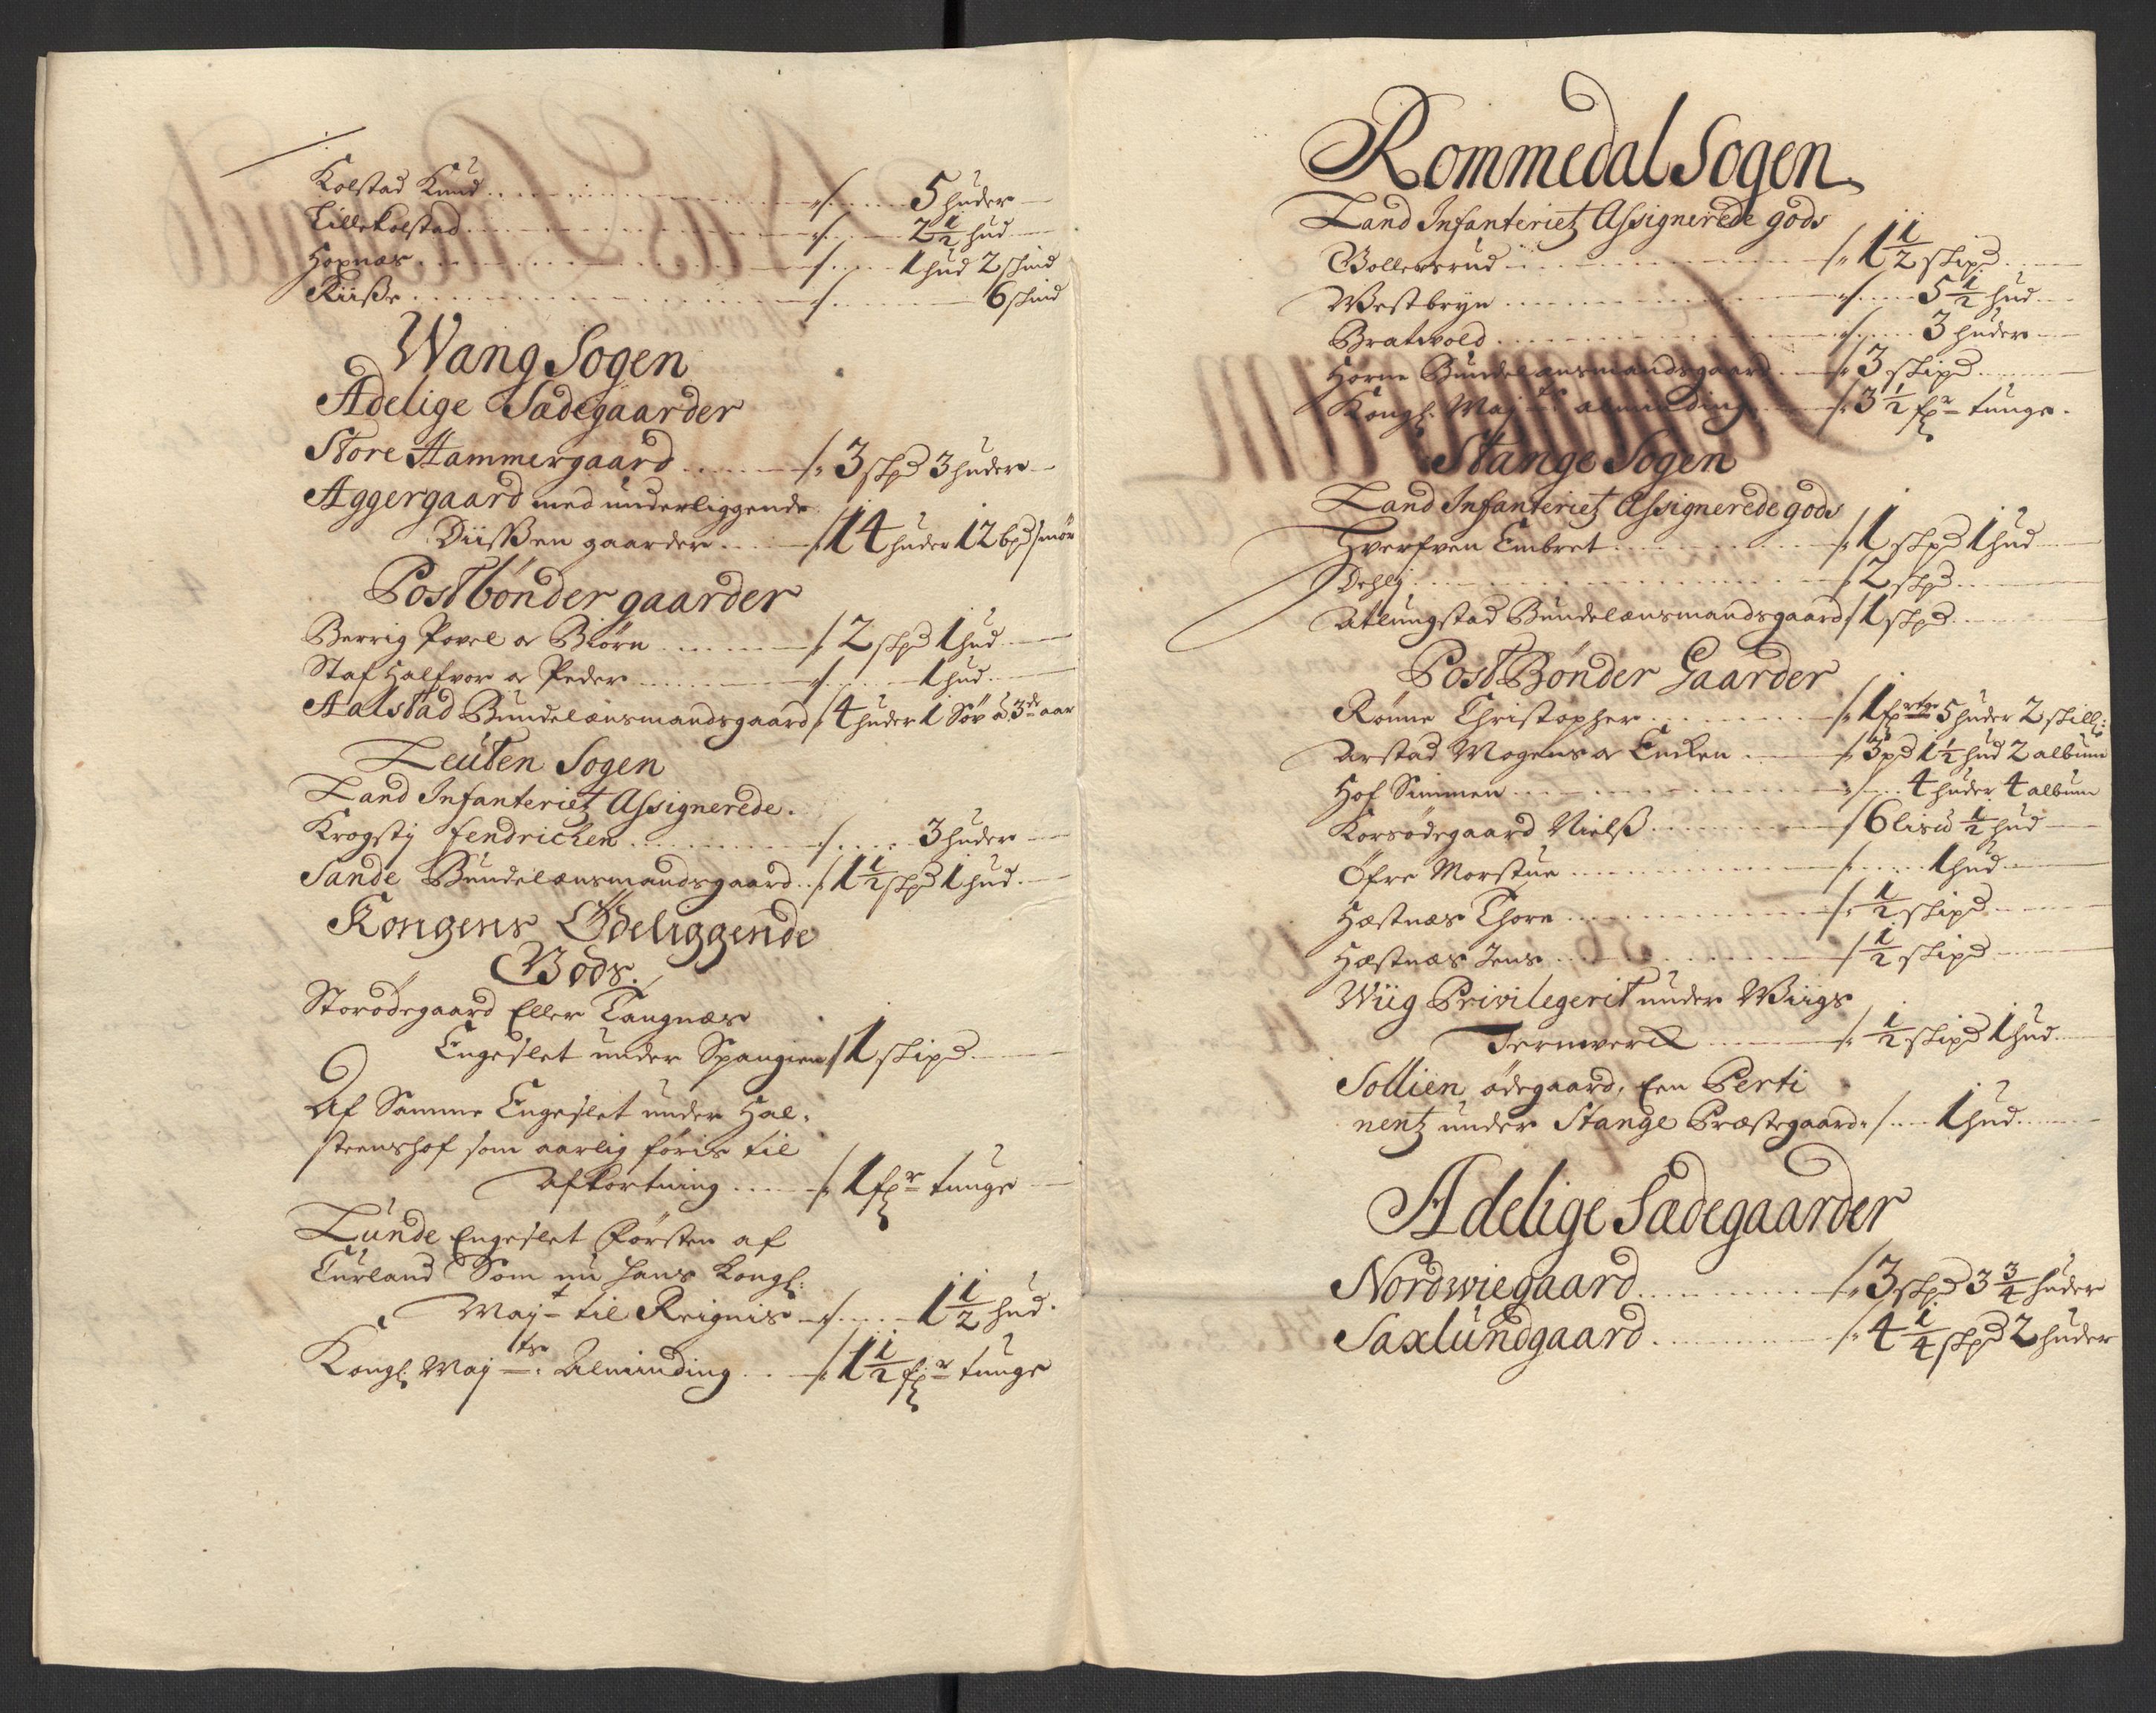 Kolstad Knud ........ /. 5 huder
Lillekolstad ........ /. 2 1/2 hud
Hopnæs ........ /. 1 hud 2 skind
Riisße ........ /. 6 skind
Wang Sogen
Adelige Sædegaarder
Store Hammergaard ..... /. 3 skpd 3 huder
Aggergaard med underliggende
Diißen gaarder .... /. 14 huder 12 bpd smør
Postbønder gaarder
Berrig Povel os Biørn ..... /. 2 skpd 1 hud
Staf Halfvor os Peder ..... /. 1 hud
Aalstad Bundelænsmandsgaard /. 4 huder 1 Søv à 3de aar
Leuten Sogen
Land Infanteriet Assignerede.
Krogstj fendrichen ..... /. 3 huder
Sande Bundelænsmandsgaard .. /. 1 1/2 skpd 1 hud
Kongens Ødeliggende
Gods.
Storødegaard Eller Tangnæs
Engeslet under Spangien /. 1 skipd
Af Samme Engeslet under Hal-
steenshof som aarlig føris til
afkortning .... /. 1 fpr tunge
Lunde Engeslet Førsten af
Curland Som nu hans Kongl:
Mayt til Reignis /. 1 1/2 hud.
Kongl Mayts: Alminding ... /. 1 1/2 fpr tunge
Rommedal Sogen
Land Infanteriet Assignerede gods
Bollersrud ..... /. 1 1/2 skipd
Westbryn ..... /. 5 1/2 hud
Bratvold ..... /. 3 huder
Horne Bundelænsmandsgaard /. 3 skipd
Kongl: Mayts alminding /. 3 1/2 fpr tunge.
Stange Sogen
Land Infanteriet Assignerede gods
Hverfven Embret ..... /. 1 skpd 1 hud
Dehlj ..... /. 2 skpd
Atlungstad Bundelænsmandsgaard /. 1 skpd
Post Bønder Gaarder
Rønne Christopher ..... /. 1 fprtge 5 huder 2 skill:
Arstad Mogens os Encken /. 3 pd 1 1/2 hud 2 album
Hof Simmen ..... /. 4 huder 4 album
Korsødegaard Nielß ..... /. 6 lispd 1/2 hud
Øfre Morstue ..... /. 1 hud
Hæstnæs Thore ..... /. 1/2 skipd
Hæstnæs Jens ..... /. 1/2 skipd
Wiig Privilegerit under Wiigs
Jernwerck ..... /. 1/2 skipd 1 hud
Sollien ødegaard, Een Perti
nentz under Stange Præstegaard. /. 1 hud
Adelige Sædegaarder
Nordwiegaard ..... /. 3 skpd 3 3/4 huder
Saxlundgaard ..... /. 4 1/4 skpd 2 huder